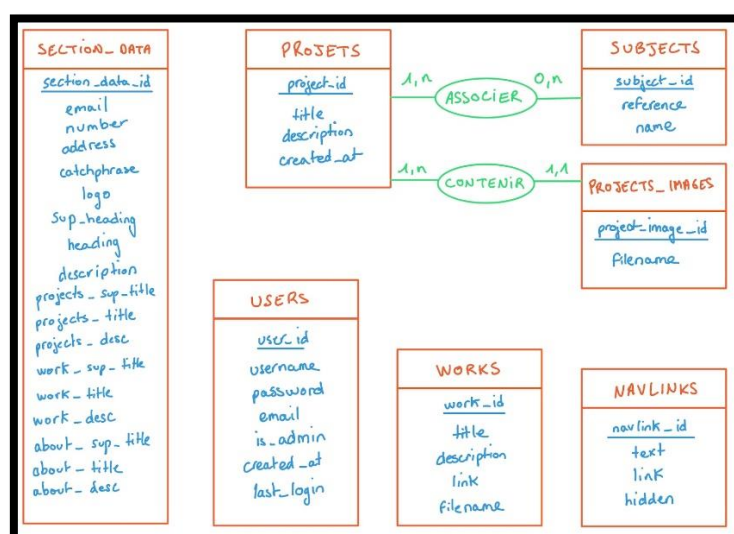 SECTION_DATA
section_data_id
email
number
address
catchphrase
logo
sup_heading
heading
description
projects_sup_title
projects_title
projects_desc
work_sup_title
work_title
work_desc
about_sup_title
about_title
about_desc
PROJETS
project_id
title
description
created_at
1,n
ASSOCIER
0,n
SUBJECTS
subject_id
reference
name
1,n
CONTENIR
1,1
PROJECTS_IMAGES
project_image_id
filename
USERS
user_id
username
password
email
is_admin
created_at
last_login
WORKS
work_id
title
description
link
filename
NAVLINKS
navlink_id
text
link
hidden